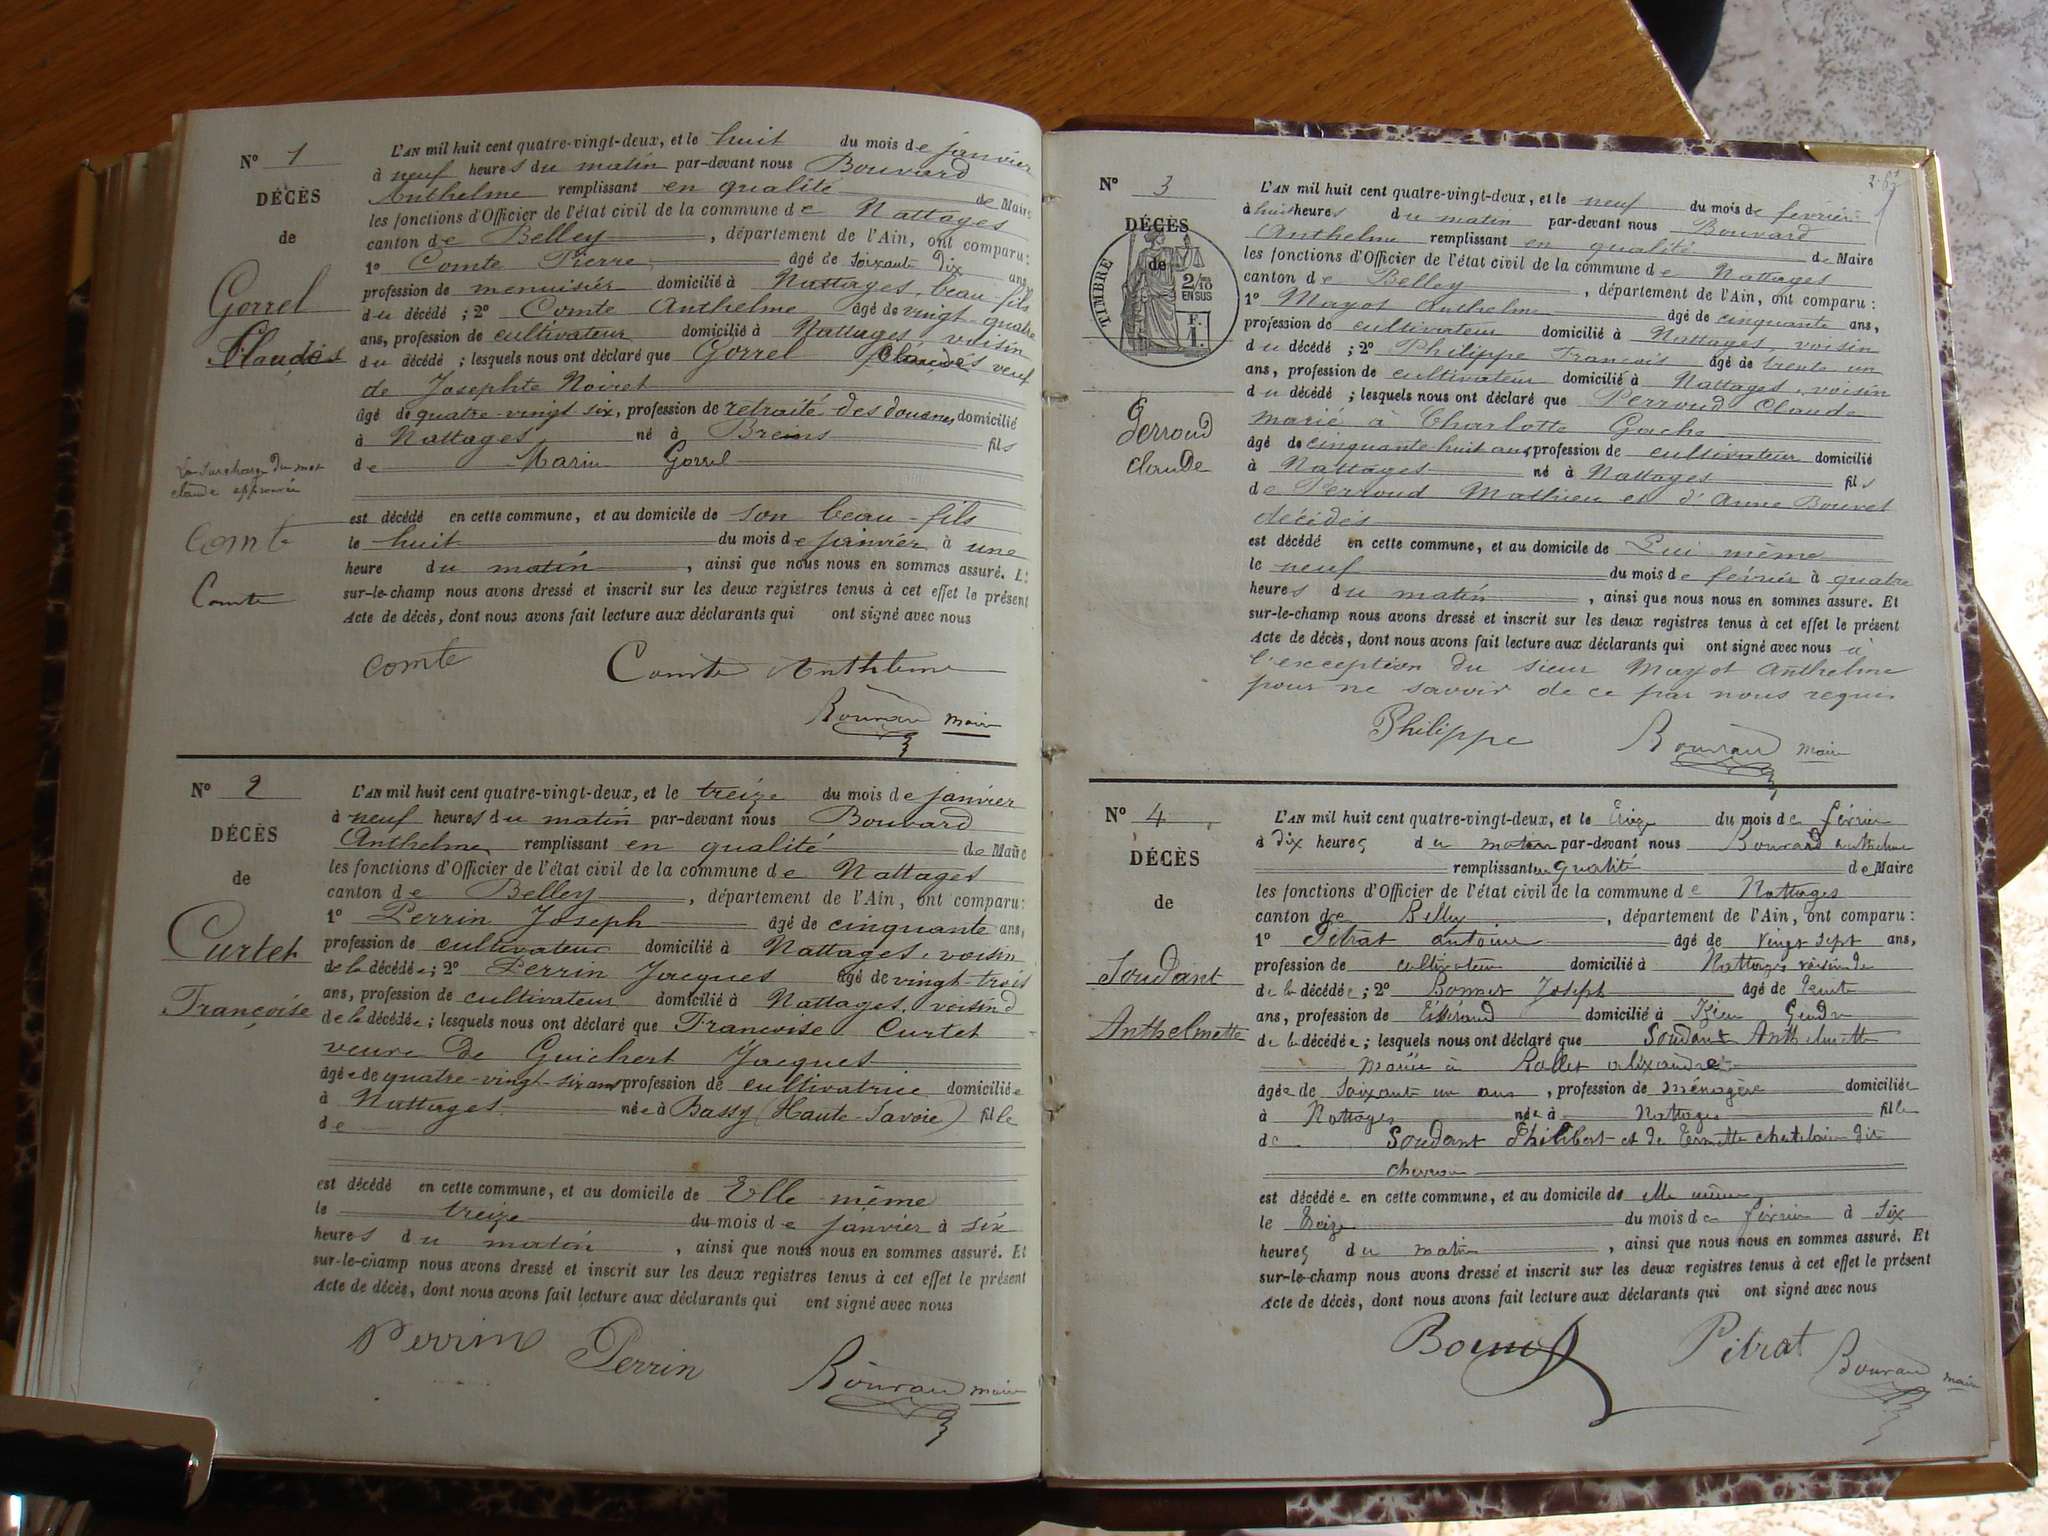 N° 1
DÉCÈS
de
Gorrel
Claude
La surcharge du mot
claude approuvée
Comte
Comte
L'AN mil huit cent quatre-vingt-deux, et le huit du mois de janvier
à neuf heures du matin par-devant nous Bouvard
Anthelme remplissant en qualité de Maire
les fonctions d'Officier de l'état civil de la commune de Nattages
canton de Belley, département de l'Ain, ont comparu:
1° Comte Pierre âgé de soixante dix ans,
profession de menuisier domicilié à Nattages, beau-fils
du décédé; 2° Comte Anthelme âgé de vingt-quatre
ans, profession de cultivateur domicilié à Nattages, voisin
du décédé; lesquels nous ont déclaré que Gorrel Claude veuf
de Josephte Noiret
âgé de quatre-vingt six, profession de retraité des douanes domicilié
à Nattages né à Brens fils
de Marin Gorrel
est décédé en cette commune, et au domicile de son beau-fils
le huit du mois de janvier à une
heure du matin, ainsi que nous nous en sommes assuré. Et
sur-le-champ nous avons dressé et inscrit sur les deux registres tenus à cet effet le présent
Acte de décès, dont nous avons fait lecture aux déclarants qui ont signé avec nous
Comte Comte Anthelme
Bouvard maire
N° 2
DÉCÈS
de
Curtet
Françoise
L'AN mil huit cent quatre-vingt-deux, et le treize du mois de janvier
à neuf heures du matin par-devant nous Bouvard
Anthelme remplissant en qualité de Maire
les fonctions d'Officier de l'état civil de la commune de Nattages
canton de Belley, département de l'Ain, ont comparu:
1° Perrin Joseph âgé de cinquante ans,
profession de cultivateur domicilié à Nattages, voisin
de la décédée; 2° Perrin Jacques âgé de vingt-trois
ans, profession de cultivateur domicilié à Nattages, voisin
de la décédée; lesquels nous ont déclaré que Francoise Curtet
veuve de Guichert Jacques
âgée de quatre-vingt-six ans profession de cultivatrice domiciliée
à Nattages née à Bassy (Haute-Savoie) fille
de
est décédé en cette commune, et au domicile de Elle même
le treize du mois de janvier à six
heures du matin, ainsi que nous nous en sommes assuré. Et
sur-le-champ nous avons dressé et inscrit sur les deux registres tenus à cet effet le présent
Acte de décès, dont nous avons fait lecture aux déclarants qui ont signé avec nous
Perrin Perrin
Bouvard maire
N° 3
DÉCÈS
de
TIMBRE
2/10
EN SUS
F.
1.
Perroud
claude
L'AN mil huit cent quatre-vingt-deux, et le neuf du mois de février
à huit heures du matin par-devant nous Bouvard
Anthelme remplissant en qualité de Maire
les fonctions d'Officier de l'état civil de la commune de Nattages
canton de Belley, département de l'Ain, ont comparu:
1° Mayot Anthelme âgé de cinquante ans,
profession de cultivateur domicilié à Nattages, voisin
du décédé; 2° Philippe Francois âgé de trente un
ans, profession de cultivateur domicilié à Nattages, voisin
du décédé; lesquels nous ont déclaré que Perroud Claude
marié à Charlotte Gache
âgé de cinquante huit ans, profession de cultivateur domicilié
à Nattages né à Nattages fils
de Perroud Mathieu et d'Anne Bouvet
décédés
est décédé en cette commune, et au domicile de Lui même
le neuf du mois de février à quatre
heures du matin, ainsi que nous nous en sommes assuré. Et
sur-le-champ nous avons dressé et inscrit sur les deux registres tenus à cet effet le présent
Acte de décès, dont nous avons fait lecture aux déclarants qui ont signé avec nous à
l'exception du sieur Mayot Anthelme
pour ne savoir de ce par nous requis
Philippe Bouvard maire
N° 4
DÉCÈS
de
Soudant
Anthelmette
L'AN mil huit cent quatre-vingt-deux, et le treize du mois de février
à dix heures du matin par-devant nous Bouvard anthelme
remplissant en qualité de Maire
les fonctions d'Officier de l'état civil de la commune de Nattages
canton de Belley, département de l'Ain, ont comparu:
1° Pitrat antoine âgé de vingt sept ans,
profession de cultivateur domicilié à Nattages voisin de
de la décédée; 2° Bonnet Joseph âgé de trente
ans, profession de Tisserand domicilié à Gendre
de la décédée; lesquels nous ont déclaré que Soudant Anthelmette
mariée à Rallet alixandre
âgée de soixante un ans, profession de ménagère domiciliée
à Nattages née à Nattages fille
de Soudant Philibert et de chatelain dit
est décédée en cette commune, et au domicile de elle même
le treize du mois de février à six
heures du matin, ainsi que nous nous en sommes assuré. Et
sur-le-champ nous avons dressé et inscrit sur les deux registres tenus à cet effet le présent
Acte de décès, dont nous avons fait lecture aux déclarants qui ont signé avec nous
Bonnet Pitrat Bouvard maire